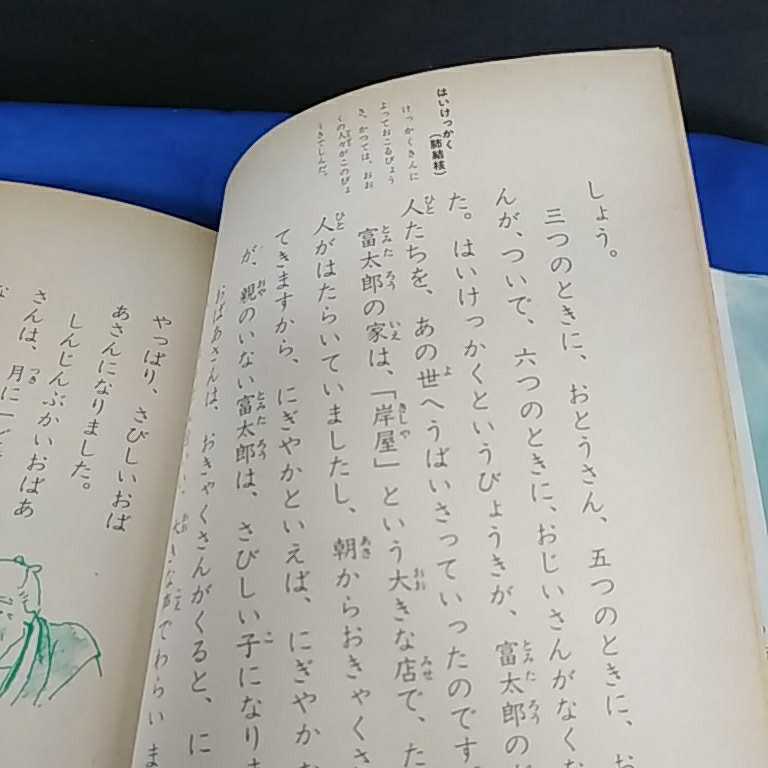 しょう。
三つのときに、おとうさん、五つのときに、お
んが、ついで、六つのときに、おじいさんがなくな
た。はいけっかくというびょうきが、富太郎の
人たちを、あの世へうばいさっていったのです
富太郎の家は、「岸屋」という大きな店で、た
人がはたらいていましたし、朝からおきゃくさ
てきますから、にぎやかといえば、にぎやか
が、親のいない富太郎は、さびしい子になりま
おばあさんは、おきゃくさんがくると、に
大きな声でわらいま
はいけっかく(肺結核)
けっかくきんに
よっておこるびょう
き。かつては、おお
くの人々がこのびょ
うきでしんだ。
やっぱり、さびしいおば
あさんになりました。
しんじんぶかいおばあ
さんは、月に一ど